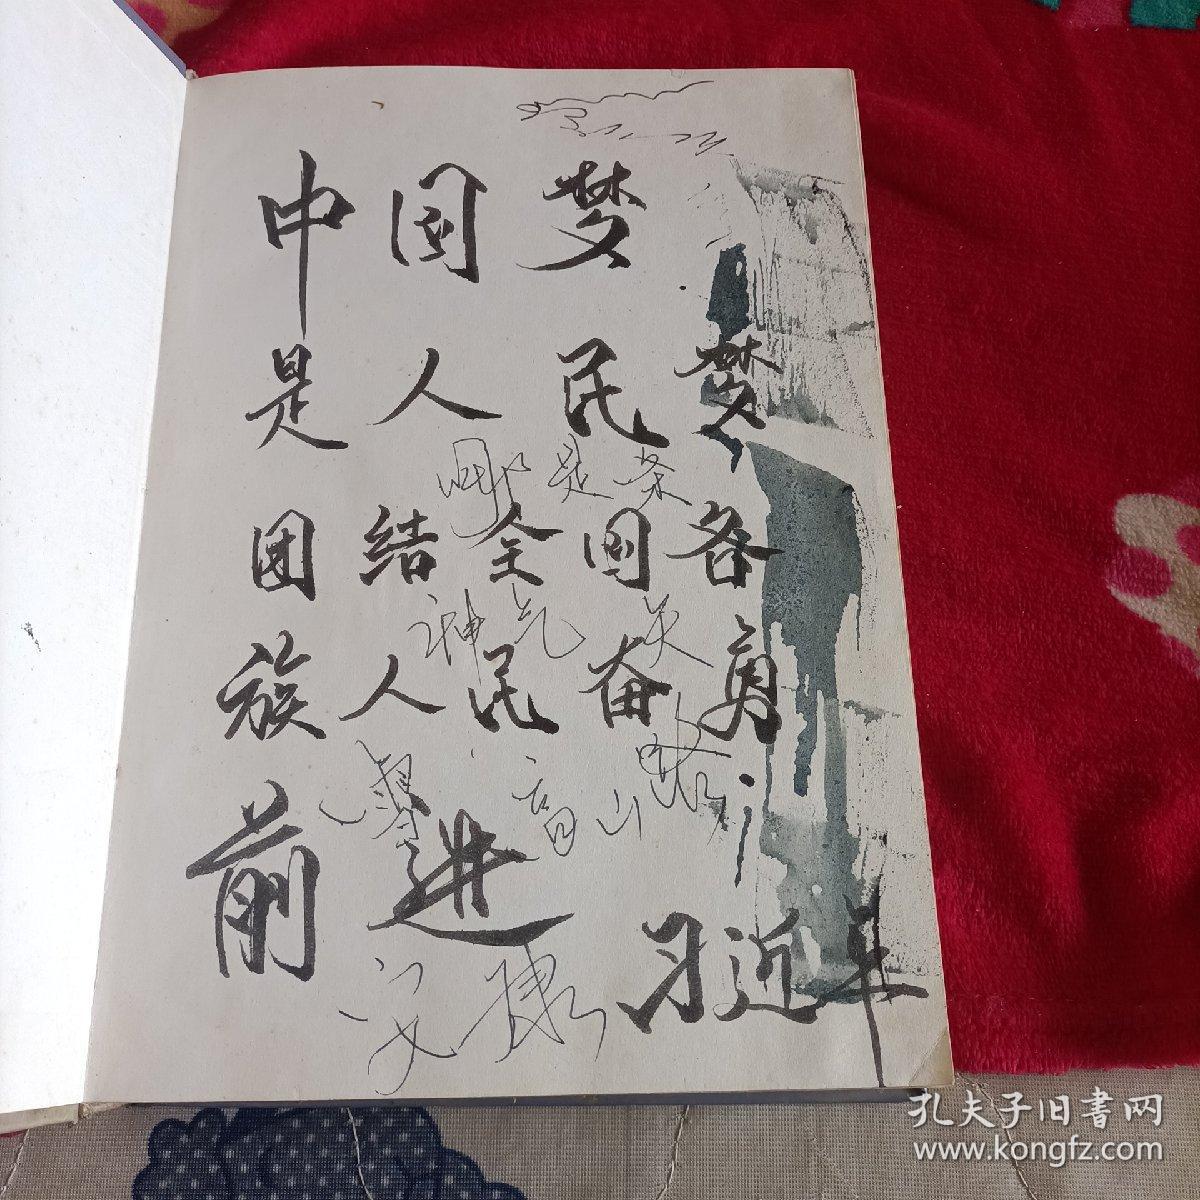 中国梦
是人民梦
哪是茶
团结全国各
神气
族人民奋勇
高山
前进
习近平
孔夫子旧書网
www.kongfz.com